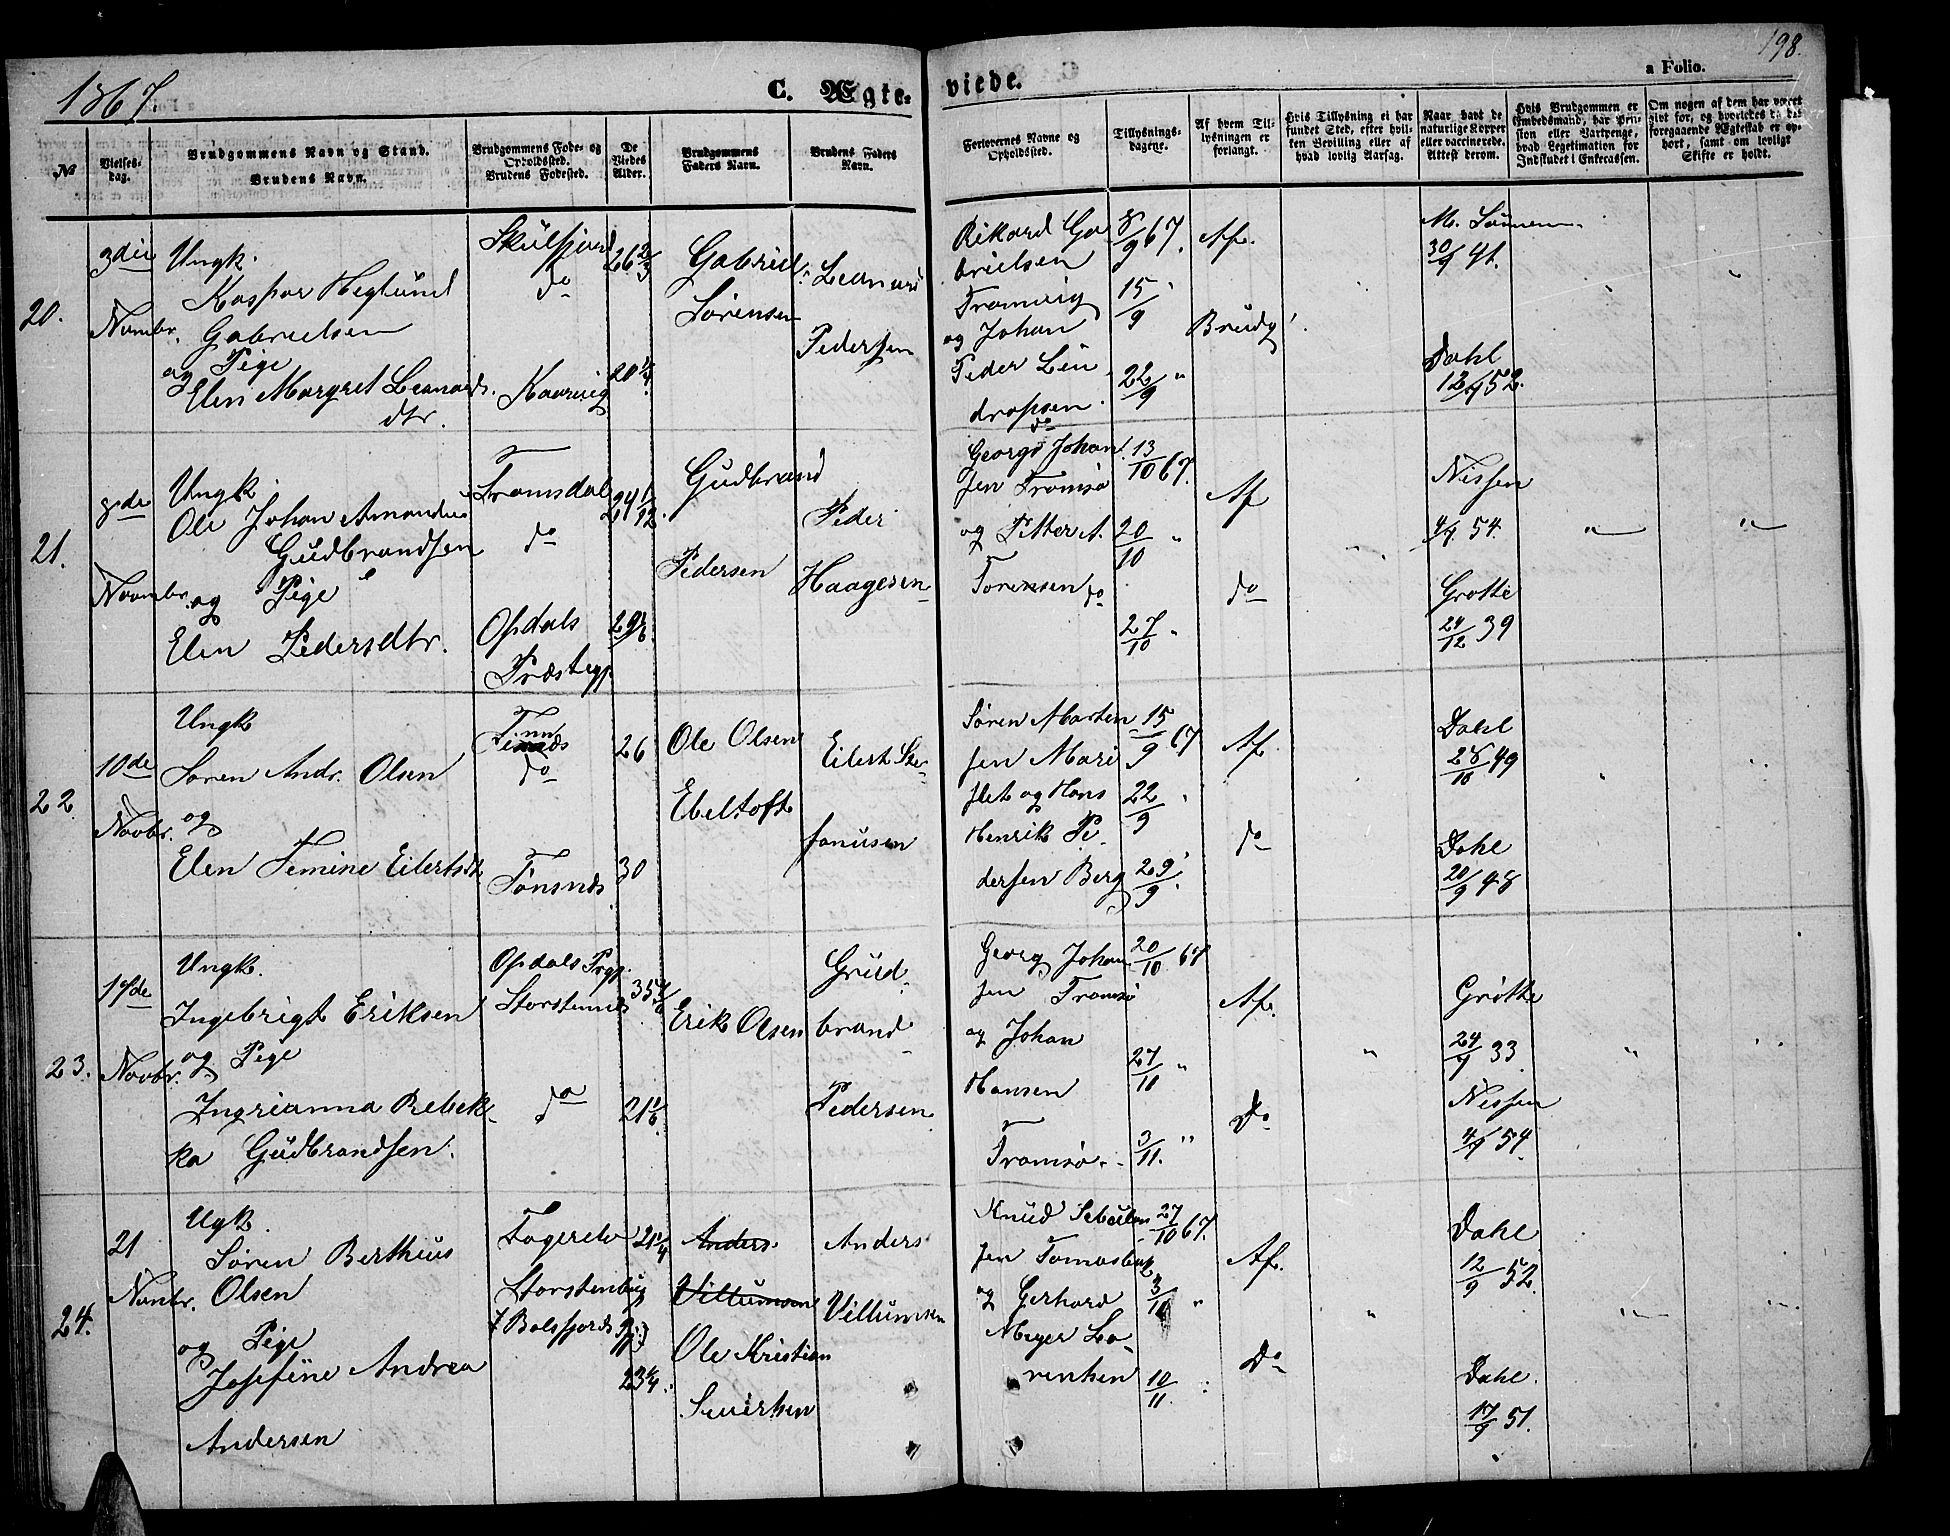 1867.
C. Ægte-
viede.
198.
a Folio.
No
Vielses-
dag.
Brudgommens Navn og Stand.
Brudens Navn.
Brudgommens Føde- og
Opholdssted.
Brudens Fødested.
De
Viedes
Alder.
Brudgommens
Faders Navn.
Brudens Faders
Navn.
Forlovernes Navne og
Opholdssted.
Tillysnings-
dagene.
Af hvem Til-
lysningen er
forlangt.
Hvis Tillysning ei har
fundet Sted, efter hvil-
ken Bevilling eller af
hvad lovlig Aarsag.
Naar havt de
naturlige Kopper
eller vaccinerede.
Attest derom.
Hvis Brudgommen er
Embedsmand, har Pen-
sion eller Vartpenge,
hvad Legitimation for
Indskudet i Enkecassen.
Om nogen af dem har været
gift før, og hvorledes da det
foregaaende Ægteskab er op-
hørt, samt om lovligt
Skifte er holdt.
20.
3die
Novmbr.
Ungk.
Kaspar Heglund
Gabrielsen
og Pige
Elen Margret Leonards
dtr.
Skulsfjord
do
Kaarvig
26 2/3
20 1/4
Gabriel
Sørensen
Leonard
Pedersen
Rikard Ga
brielsen
Tromvig
og Johan
Peder Lin
dropsen
do
8/9 67.
15/9
22/9 "
Af.
Brudg.
30/9 41.
Dahl
12/9 52.
21.
8de
Novmbr.
Ungk.
Ole Johan Amandus
Gudbrandsen
og Pige
Elen Pedersdtr.
Tromsdal
do
Opdals
Præstegj.
24 1/12
29 1/6
Gudbrand
Pedersen
Peder
Haagesen
Georg Johan
sen Tromsø
og Petter A.
Torensen do
13/10 67.
20/10 "
27/10 "
Af
do
Nissen
4/9 54.
Grøtte
24/12 39
22.
10de
Novbr.
Ungk
Søren Andr. Olsen
og
Elen Femine Eilertsdt
do
Tønsnes
26
30
Ole Olsen
Ebeltoft
Eilert Ste-
fanusen
Søren Marten
sen Mari
slet og Hans
Henrik Pe
dersen Berg
15/9 67
22/9 "
29/9 "
Af.
do
Dahl
28/10 49
Dahl
20/9 48
23.
17de
Novbr.
Ungk.
Ingebrigt Eriksen
og Pige
Ingrianna Rebek
ka Gudbrandsen.
Opdals Prgj.
Storstennes
do
21 1/6
Erik Olsen
Grud-
brand
Pedersen
Georg Johan
sen Tromsø
og Johan
Hansen
Tromsø.
20/10 67
27/10 "
3/11. "
Af.
Do
Grøtte
24/9 33
Nissen
4/9 54.
24.
21
Novbr.
Ugk.
Søren Bertheus
Olsen
og Pige
Josefine Andrea
Andersen
Fagerelv
Storstenbug
Anders
Villumsen
Ole Kristian
Sivertsen
Anders
Villumsen
Knud
sen Tomasbak
og Gerhard
Meyer Lo-
rentsen
27/10 67.
3/11 "
10/11 "
Af.
Do
Dahl
12/9 52.
Dahl.
17/9 51.